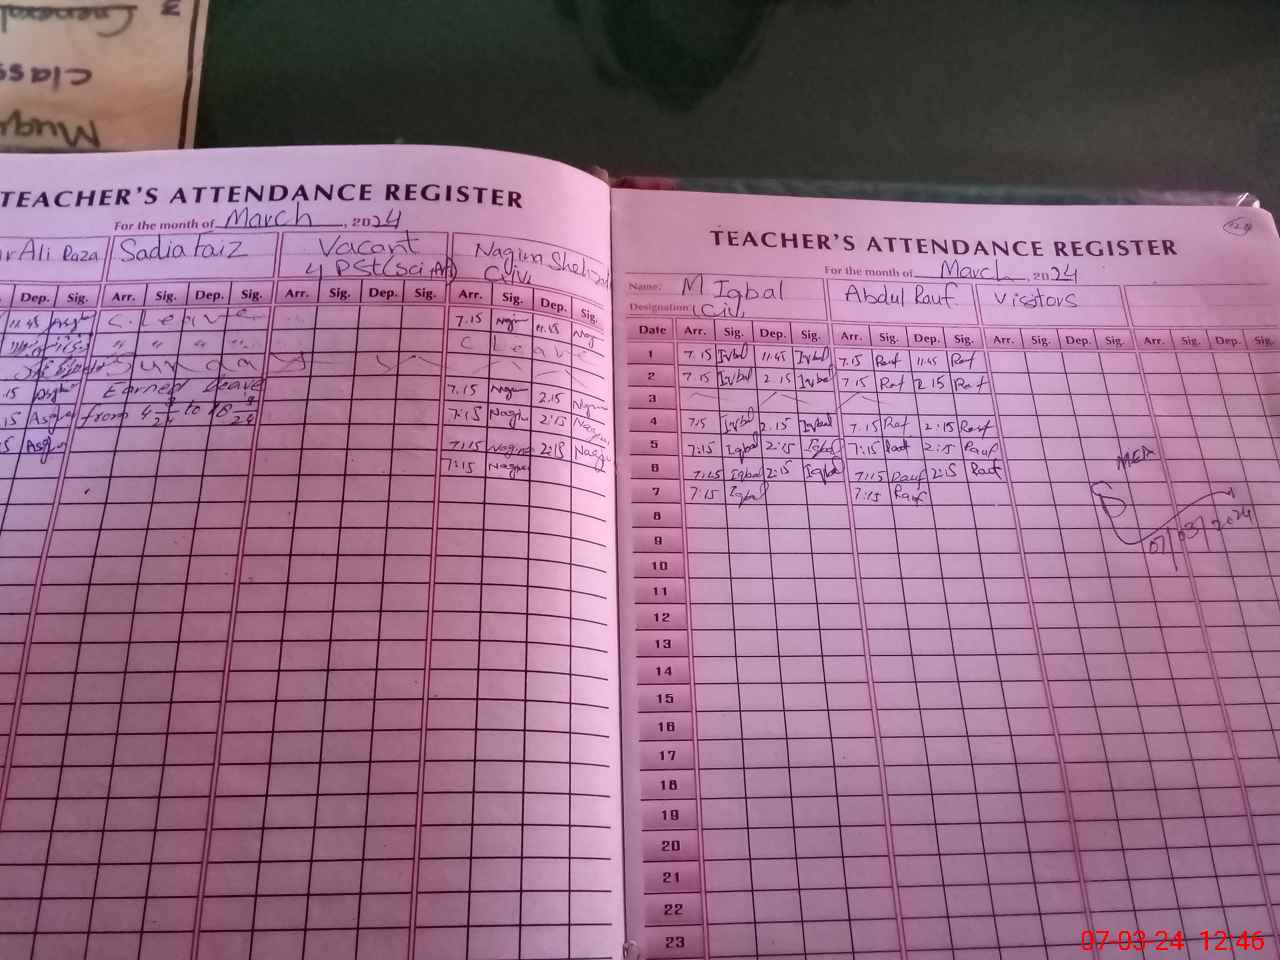 3
General
class
TEACHER'S ATTENDANCE REGISTER
For the month of March, 2024
Ali Raza Sadia Faiz Vacant Nagina
4 PSt (Sci, Art) Civ,
Dep. Sig. Arr. Sig. Dep. Sig. Arr. Sig. Dep. Sig. Arr. Sig. Dep. Sig.
11.45 C. Leave 7.15 11.45
" " " " C Leave
Sunday
.15 Earned Leave 7.15 2.15
15 from 4 3/24 to 18 3/24 7:15 Nagin 2:15
5 7:15 Nagina 2:15
7:15 Nagina
TEACHER'S ATTENDANCE REGISTER
For the month of March, 2024
Name: M Iqbal Abdul Rauf Visitors
Designation Civ,
Date Arr. Sig. Dep. Sig. Arr. Sig. Dep. Sig. Arr. Sig. Dep. Sig. Arr. Sig. Dep. Sig.
1 7.15 Iqbal 11.45 Iqbal 7.15 Rauf 11.45 Raf
2 7.15 Iqbal 2.15 Iqbal 7.15 Raf 2.15 Raf
3
4 7.15 Iqbal 2.15 Iqbal 7.15 Raf 2:15 Rauf
5 7:15 Iqbal 2:15 Iqbal 7:15 Rauf 2:15 Rauf
6 7:15 Iqbal 2:15 Iqbal 7:15 Rauf 2:15 Rauf
7 7:15 Iqbal 7:15 Rauf
MEA
07/03/2024
8
9
10
11
12
13
14
15
16
17
18
19
20
21
22
23
07-03-24 12:46